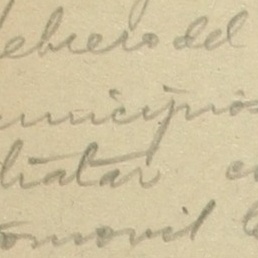 ebrero del
unicipios
tratar
tomovil